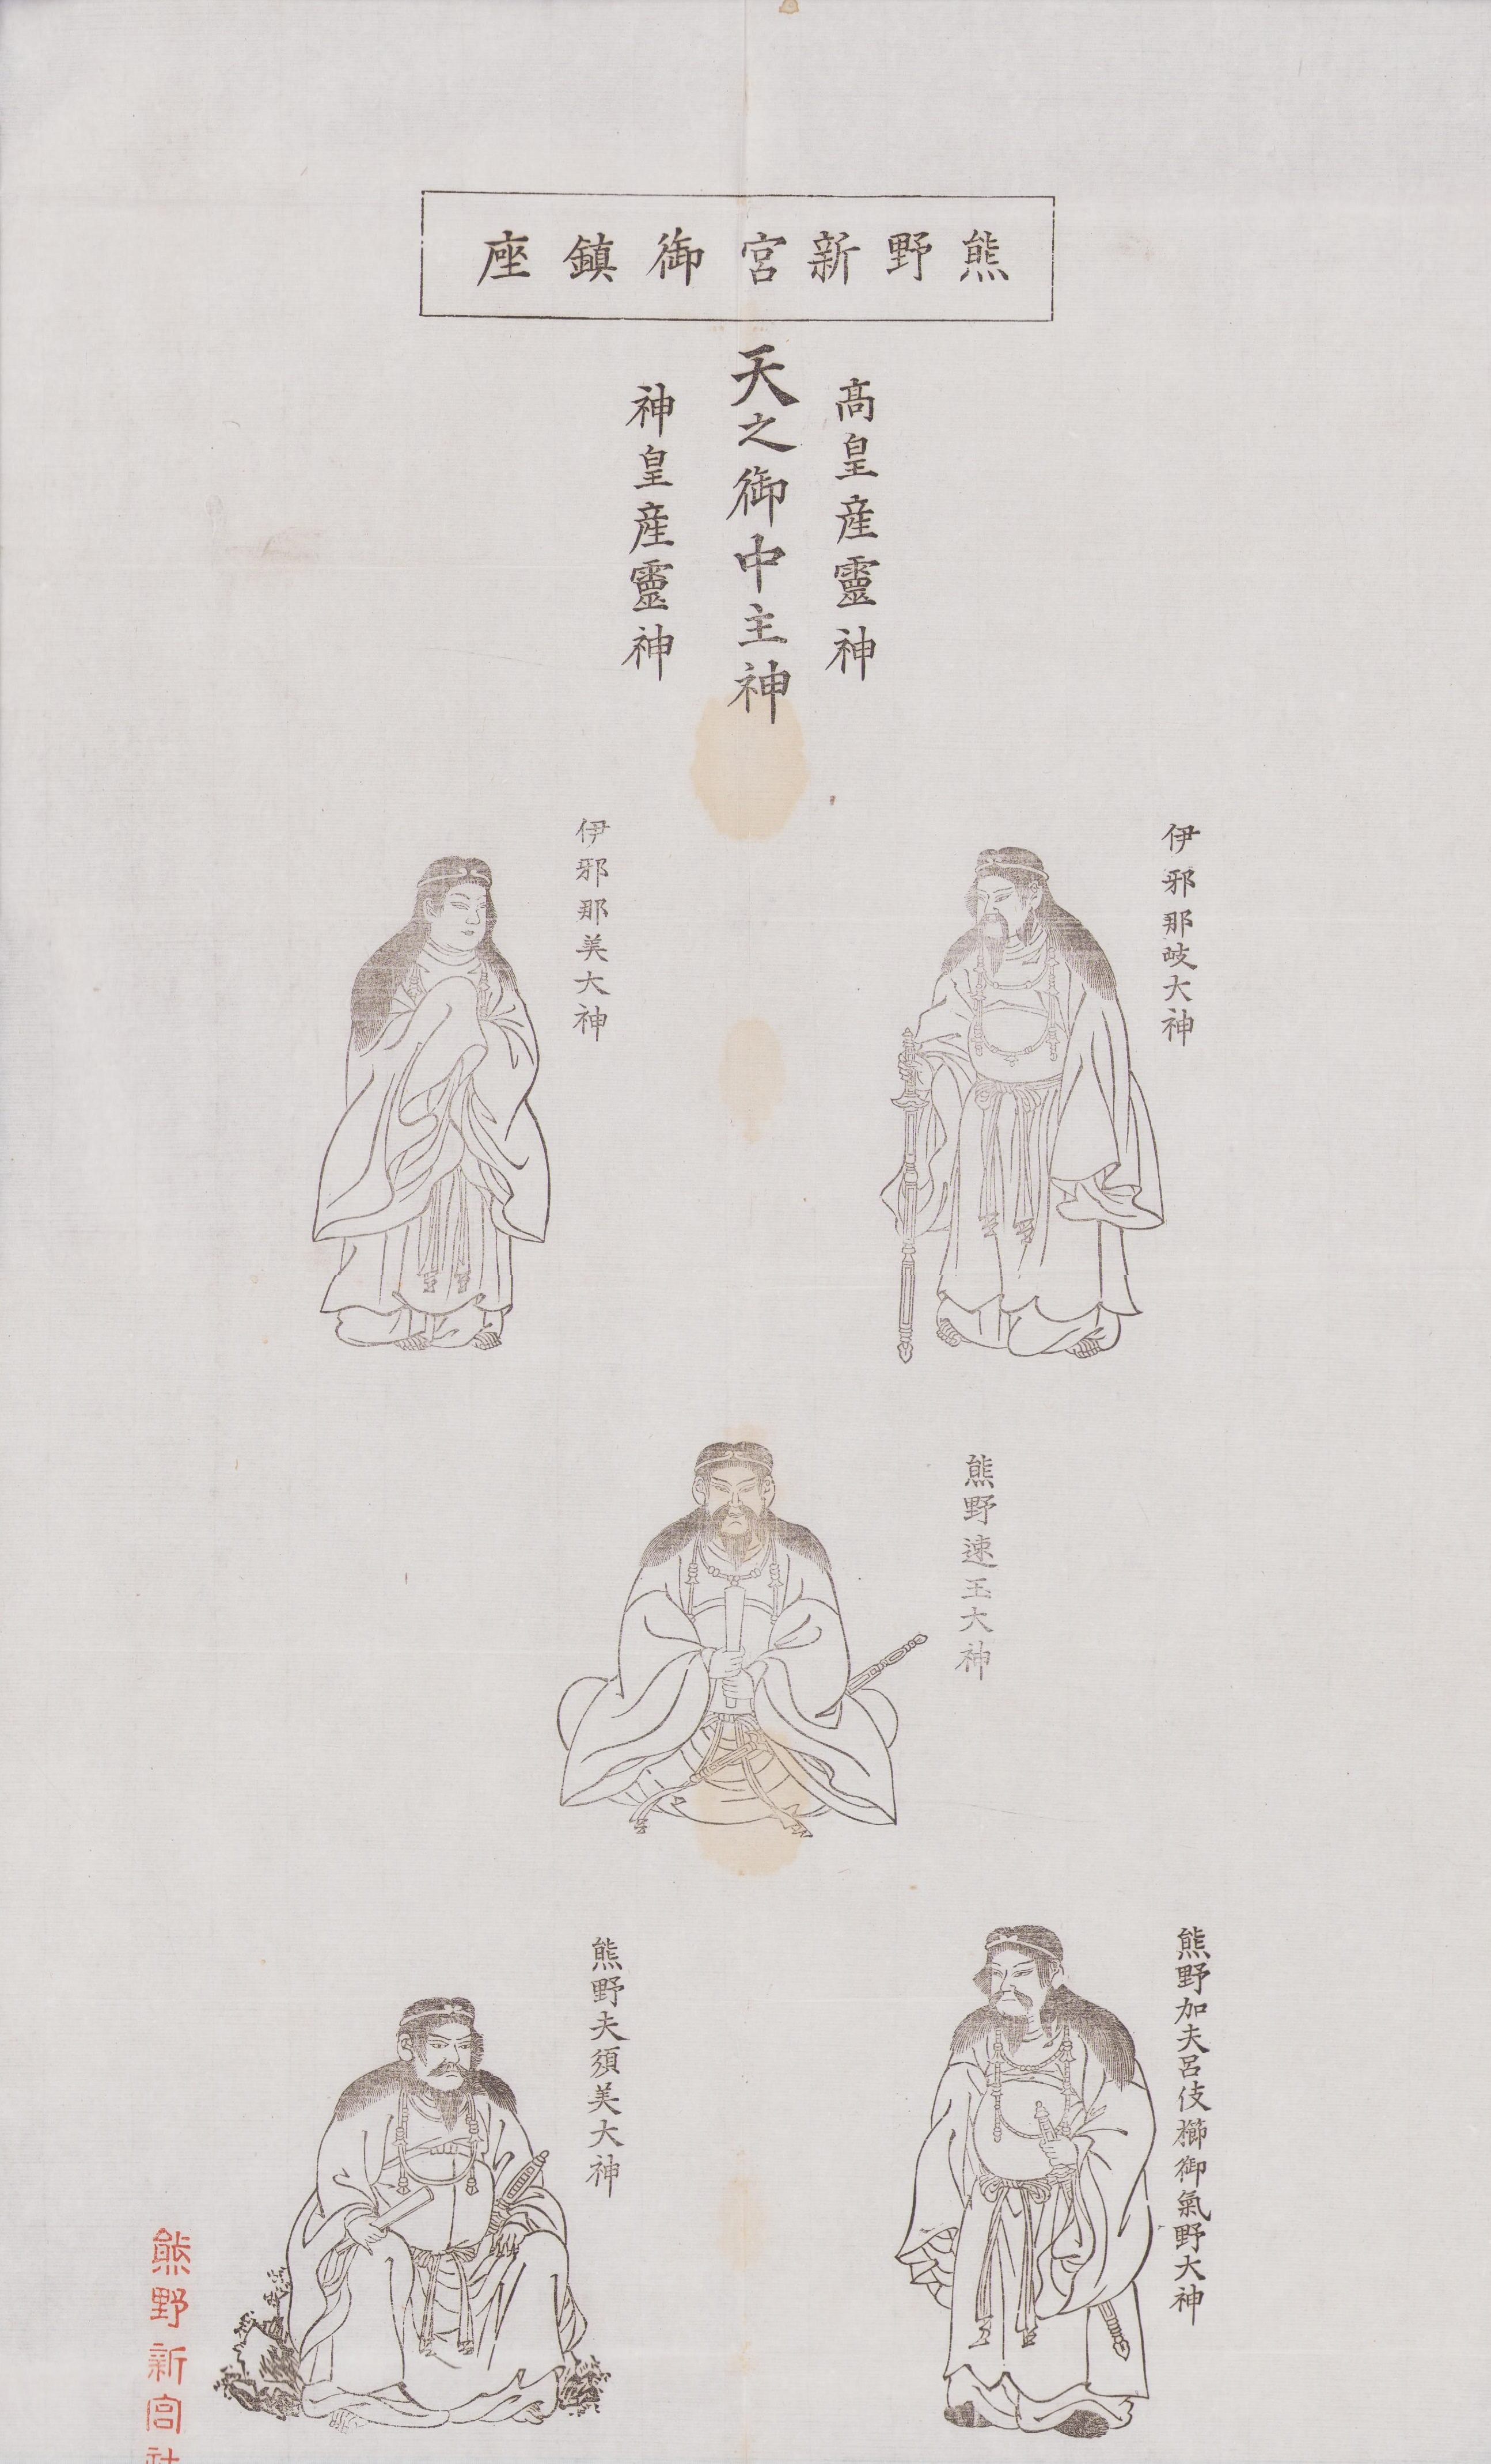 熊野新宮御鎮座
高皇産靈神
天之御中主神
神皇産靈神
伊邪那岐大神
伊邪那美大神
熊野速玉大神
熊野加夫呂伎櫛御氣野大神
熊野夫須美大神
熊野新宮社